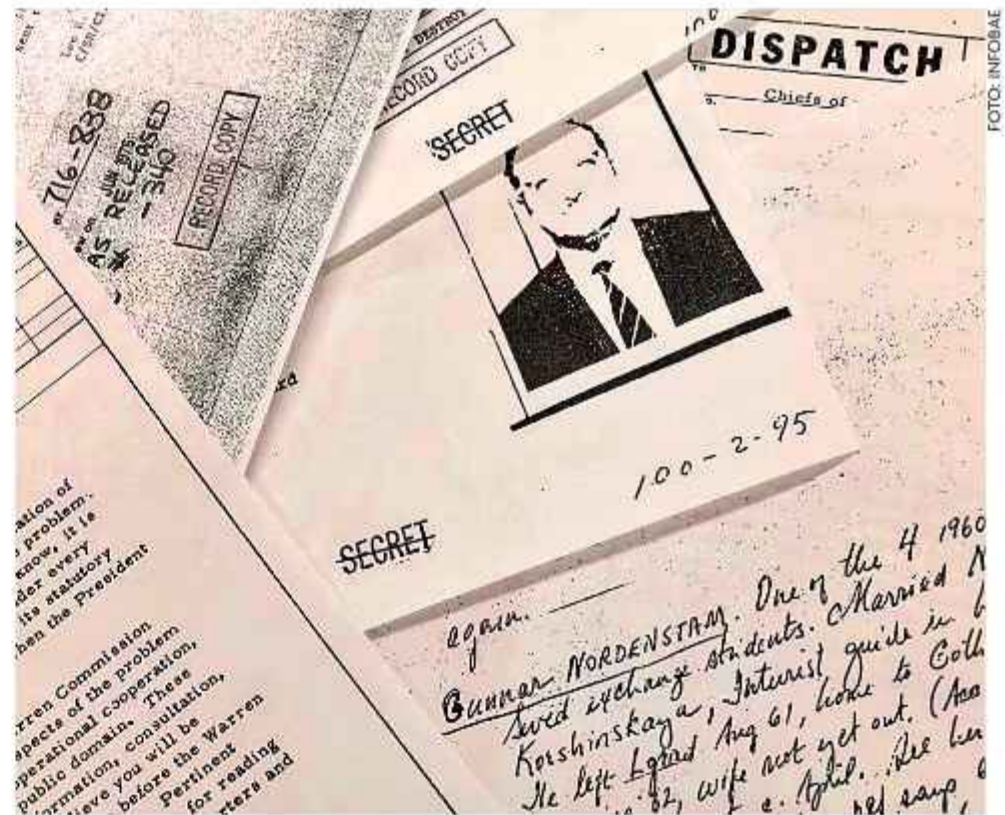 716-838
AS RELEASED
-340
RECORD COPY
DESTROY
RECORD COPY
SECRET
DISPATCH
TO
Chiefs of
FOTO: INFOBAE
100-2-95
SECRET
ation of
problem.
know, it is
der every
its statutory
hen the President
rren Commission
spects of the problem
perational cooperation,
public domain. These
formation, consultation,
lieve you will be
before the Warren
Pertinent
for reading
rters and
again.
Gunnar NORDENSTAM. One of the 4 1960
Swed exchange students. Married N
Korshinskaya, Inturist guide in
He left Lgrad Aug 61, home to Goth
62, wife not yet out. (Aca
April. See her